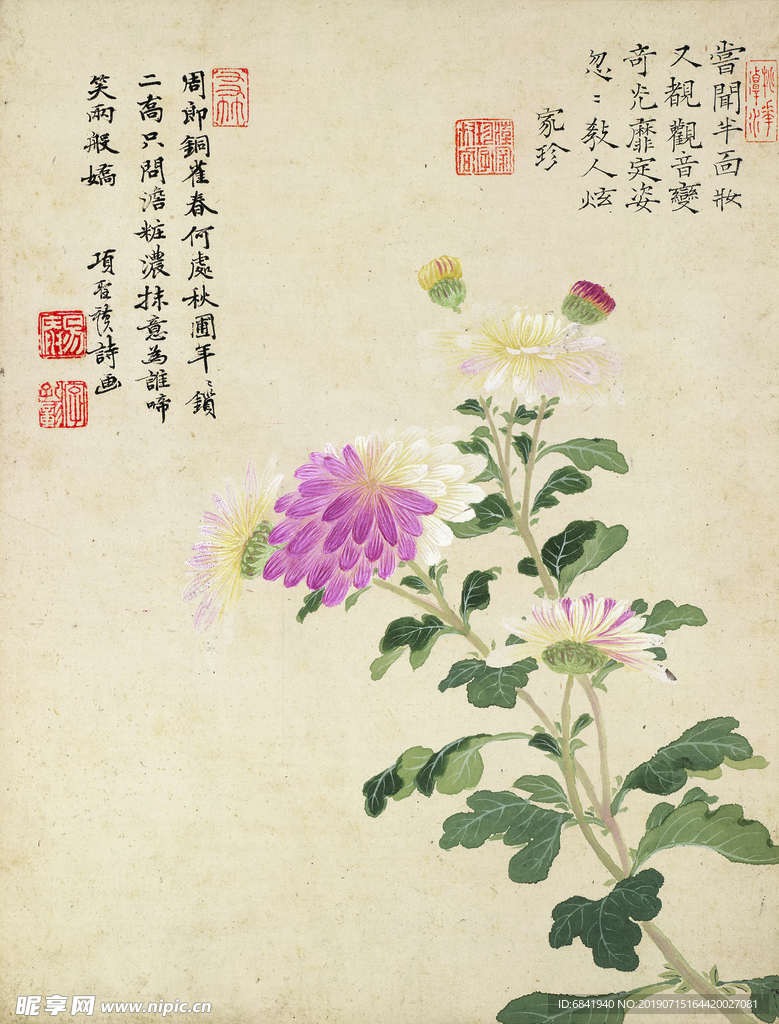 嘗聞半面妝
又覩觀音變
奇光靡定姿
忽〻教人炫
家珍
周郎銅雀春何處秋圃年〻鎖
二喬只問澹粧濃抹意為誰啼
笑兩般嬌
項聖謨詩画
昵享网 www.nipic.cn
ID:6841940 NO:20190715164420027081